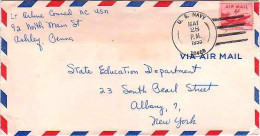 Lt Arline Conrad NC USN
92 North Main St
Ashley, Penna
U. S. NAVY
MAY
25
P.M.
AIR MAIL
VIA AIR MAIL
State Education Department
23 South Pearl Street
Albany 7,
New York